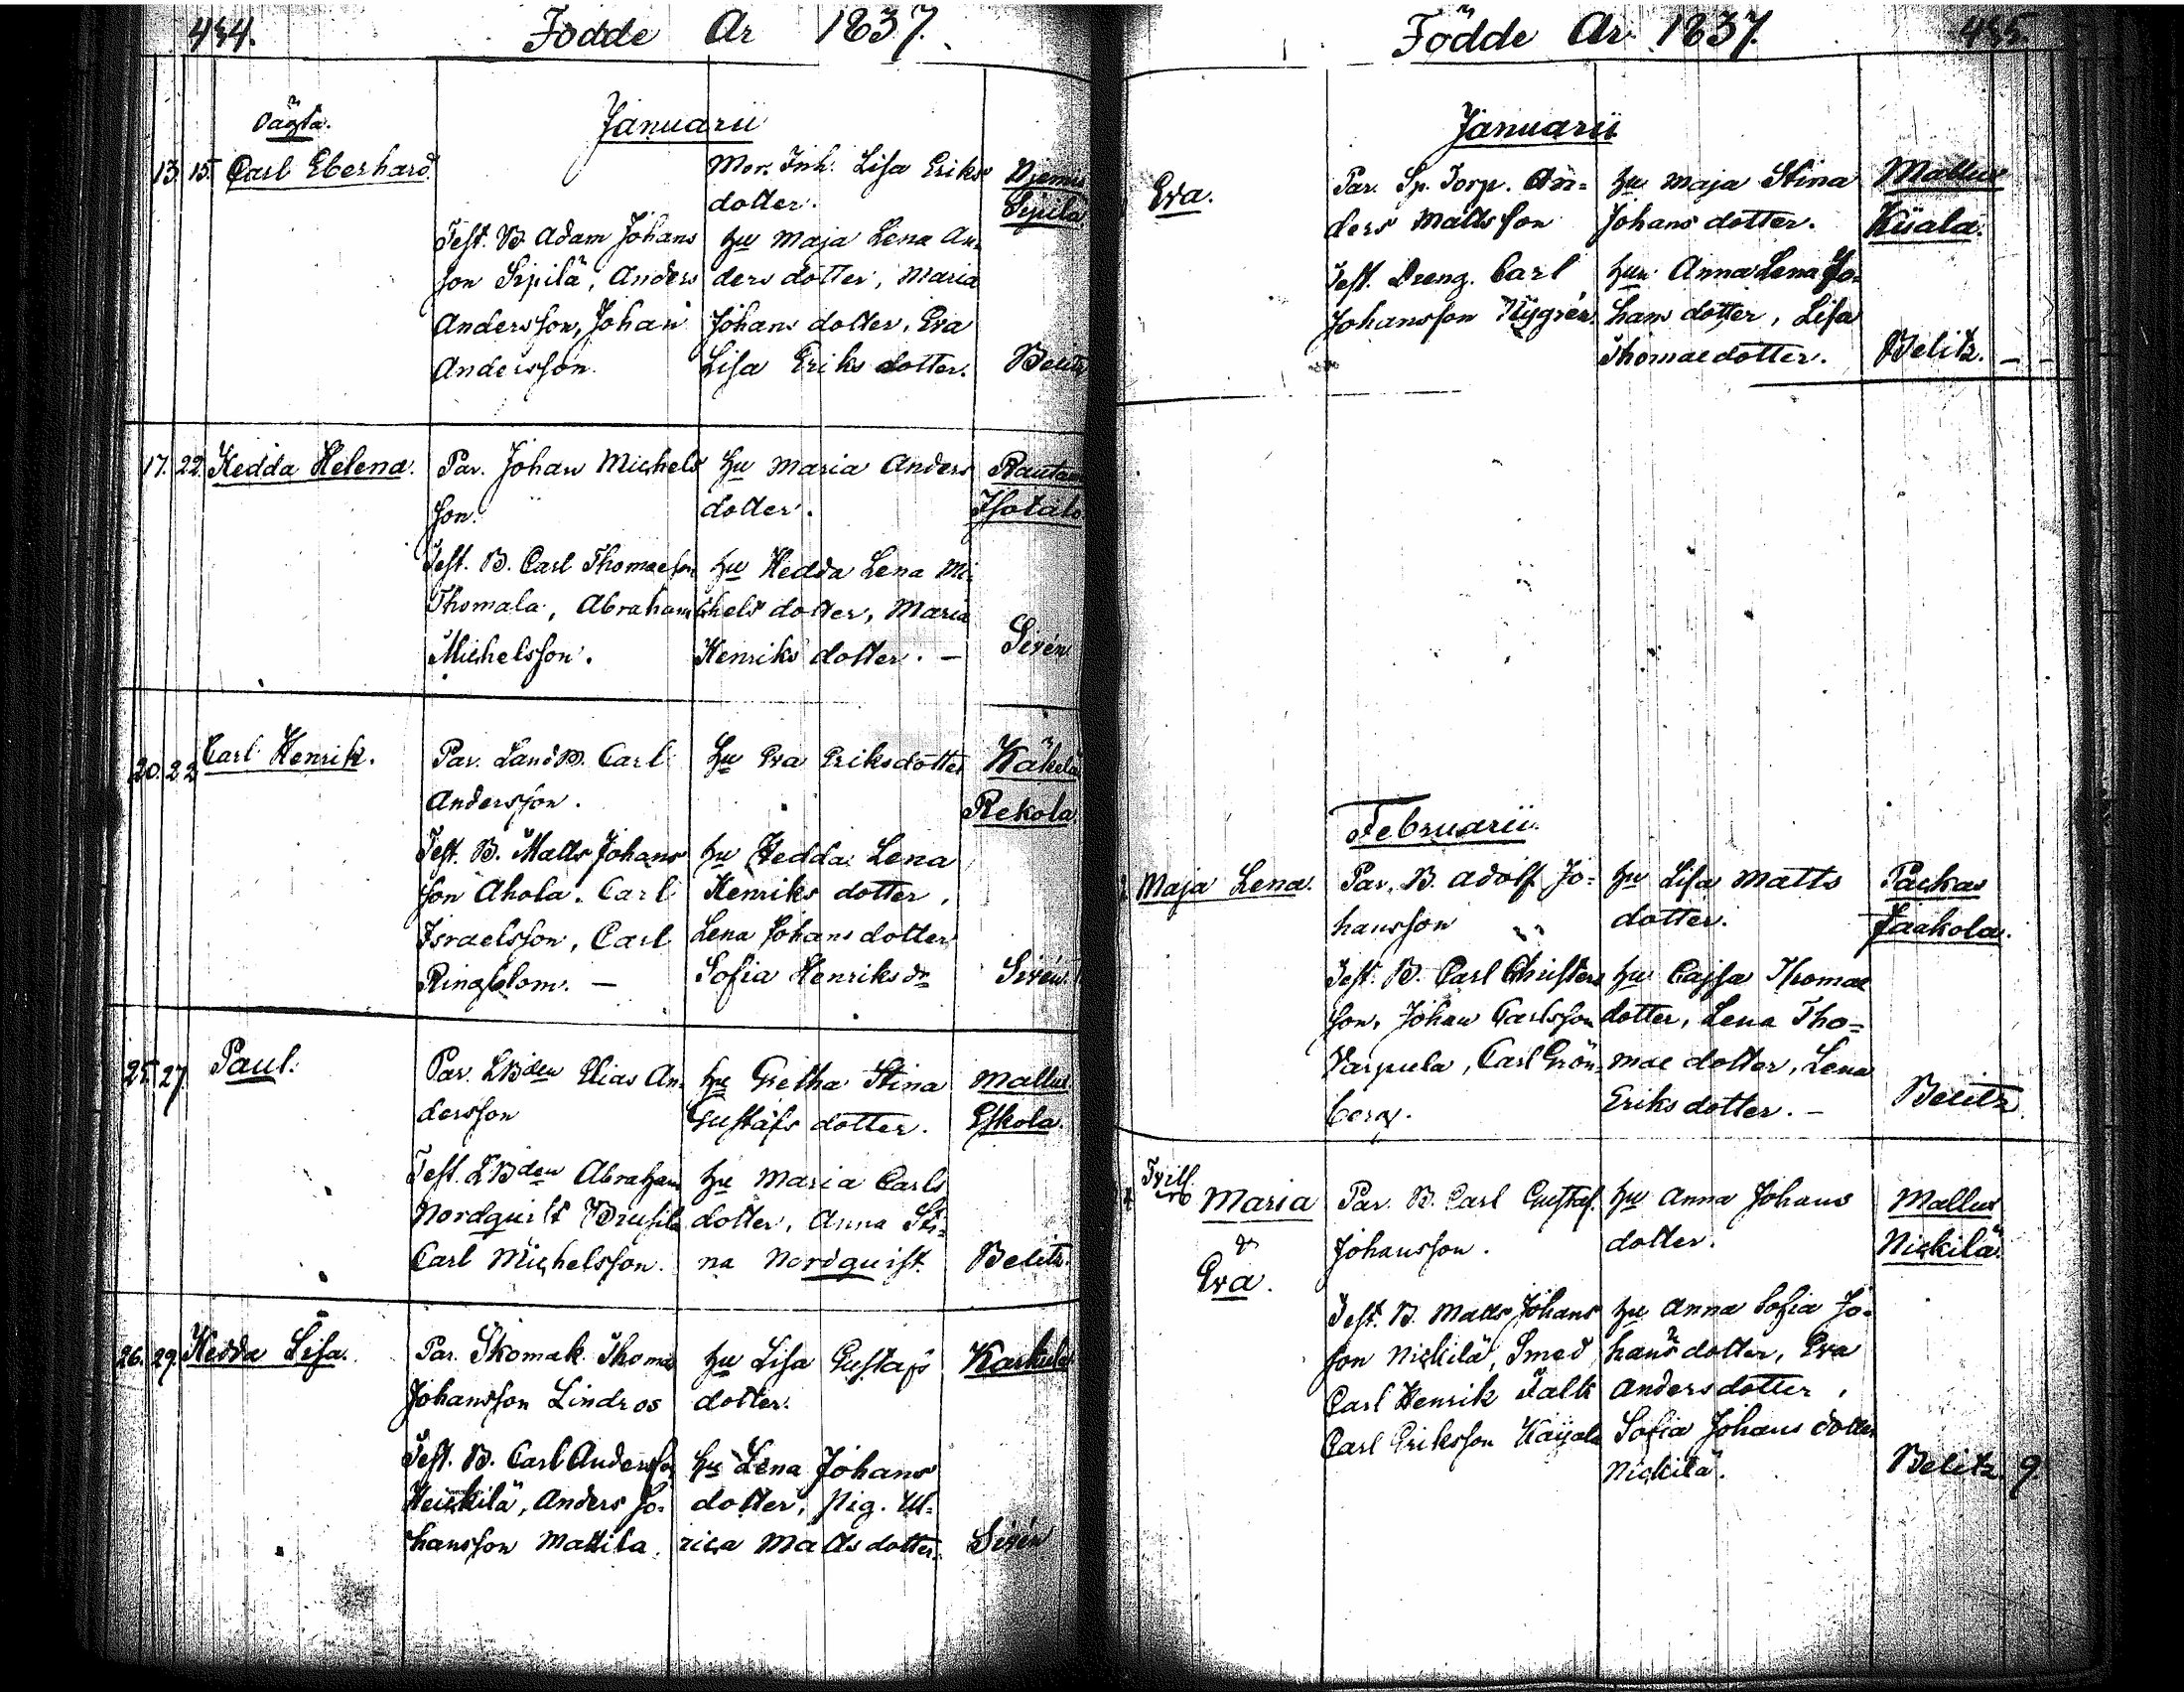 Födde År 1837.
Januarii
oägta.
13. 15. Carl Eberhard
Mor. Inh. Lisa Eriks
dotter.
Sipilä
Test. B. Adam Johans
son Sipilä, Anders
Andersson, Johan
Andersson.
hu Maja Lena An-
ders dotter, Maria
Johans dotter, Eva
Lisa Eriks dotter.
Belitz
17. 22. Hedda Helena.
Par. Johan Michels
son.
hu Maria Anders
dotter.
Rautan
Isotalo
Test. B. Carl Thomaeson
Thomala, Abraham
Michelsson.
hu Hedda Lena Mi-
chels dotter, Maria
Henriks dotter. –
Sirén
20. 22 Carl Henrik.
Par. LandB. Carl
Andersson.
hu Eva Eriksdotter
Rekola.
Test. B. Matts Johans
son Ahola. Carl
Israelsson, Carl
Ringblom. –
hu Hedda Lena
Henriks dotter,
Lena Johans dotter
Sofia Henriks dr
Sirén.
25. 27. Paul.
Par. LBden Elias An-
dersson
hu Gretha Stina
Gustafs dotter.
Mallus
Eskola.
Test. LBden Abraham
Nordquist
Carl Michelsson.
hu Maria Carls
dotter, Anna Sti-
na Nordquist.
Belitz.
26. 29. Hedda Lisa.
Par. Skomak. Thomas
Johansson Lindros
hu Lisa Gustafs
dotter.
Karkula
Test. B. Carl Andersson
Heickilä, Anders Jo-
hansson Mattila.
hu Lena Johans
dotter, Pig. Ul-
rica Matts dotter.
Sirén
Födde År 1837.
Januarii
Eva.
Par. Sp. Torp. An-
ders Mattsson
hu Maja Stina
Johans dotter.
Mallus
Kiiala.
Test. Dreng. Carl
Johansson Nygrén.
hu Anna Lena Jo-
hans dotter, Lisa
Thomae dotter.
Belitz. – –
Februarii.
Maja Lena.
Par. B. Adolf Jo-
hansson
hu Lisa Matts
dotter.
Packas
Jaakola.
Test. B. Carl Christers
son, Johan Carlsson
Varpula, Carl Grön-
berg.
hu Cajsa Thomae
dotter, Lena Tho-
mae dotter, Lena
Eriks dotter. –
Belitz.
Maria
&
Eva.
Par. B. Carl Gustaf.
Johansson.
hu Anna Johans
dotter.
Mallus
Nickilä.
Test. B. Matts Johans
son Nickilä, Smed
Carl Henrik Falk
Carl Eriksson
hu Anna Sofia Jo-
hans dotter, Eva
Anders dotter,
Sofia Johans dotter
Nickilä.
Belitz. 9.